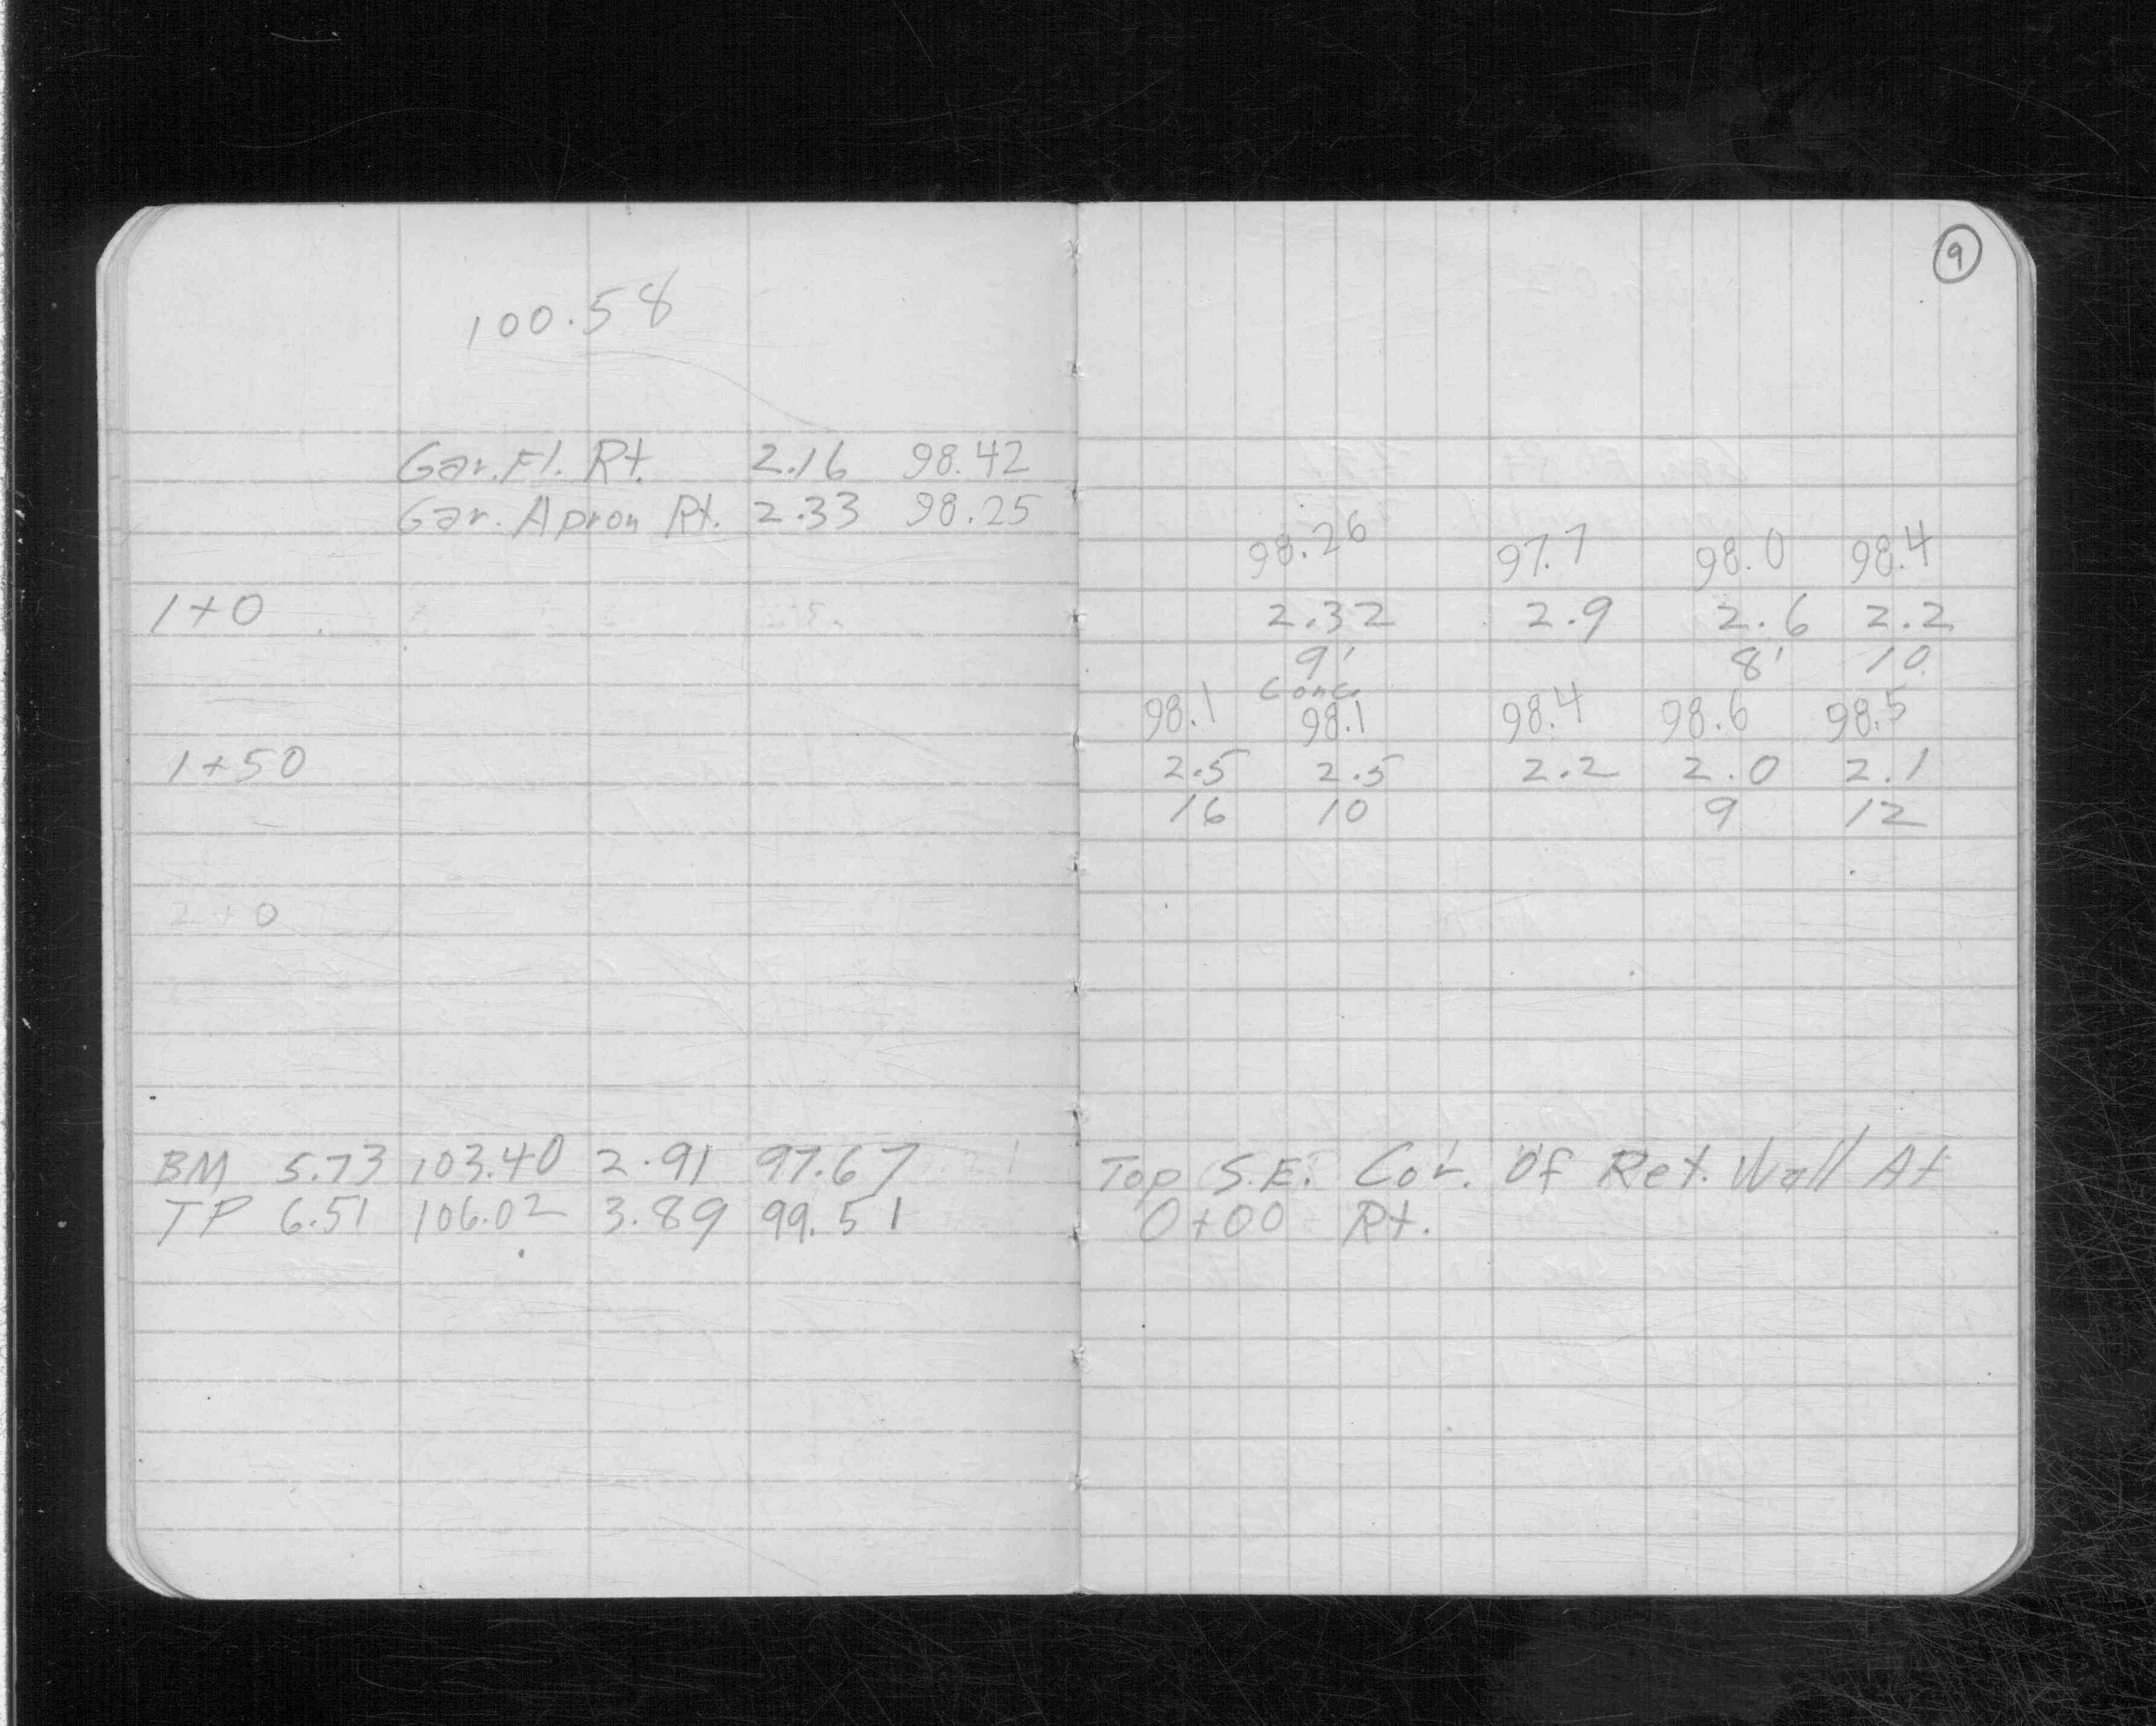 100.58
Gar. Fl. Rt. 2.16 98.42
Gar. Apron Rt. 2.33 98.25
1+0
1+50
2+0
BM 5.73 103.40 2.91 97.67
TP 6.51 106.02 3.89 99.51
9
98.26 97.7 98.0 98.4
2.32 2.9 2.6 2.2
9' 8' 10
Conc.
98.1 98.1 98.4 98.6 98.5
2.5 2.5 2.2 2.0 2.1
16 10 9 12
Top S.E. Cor. Of Ret. Wall At
0+00 Rt.